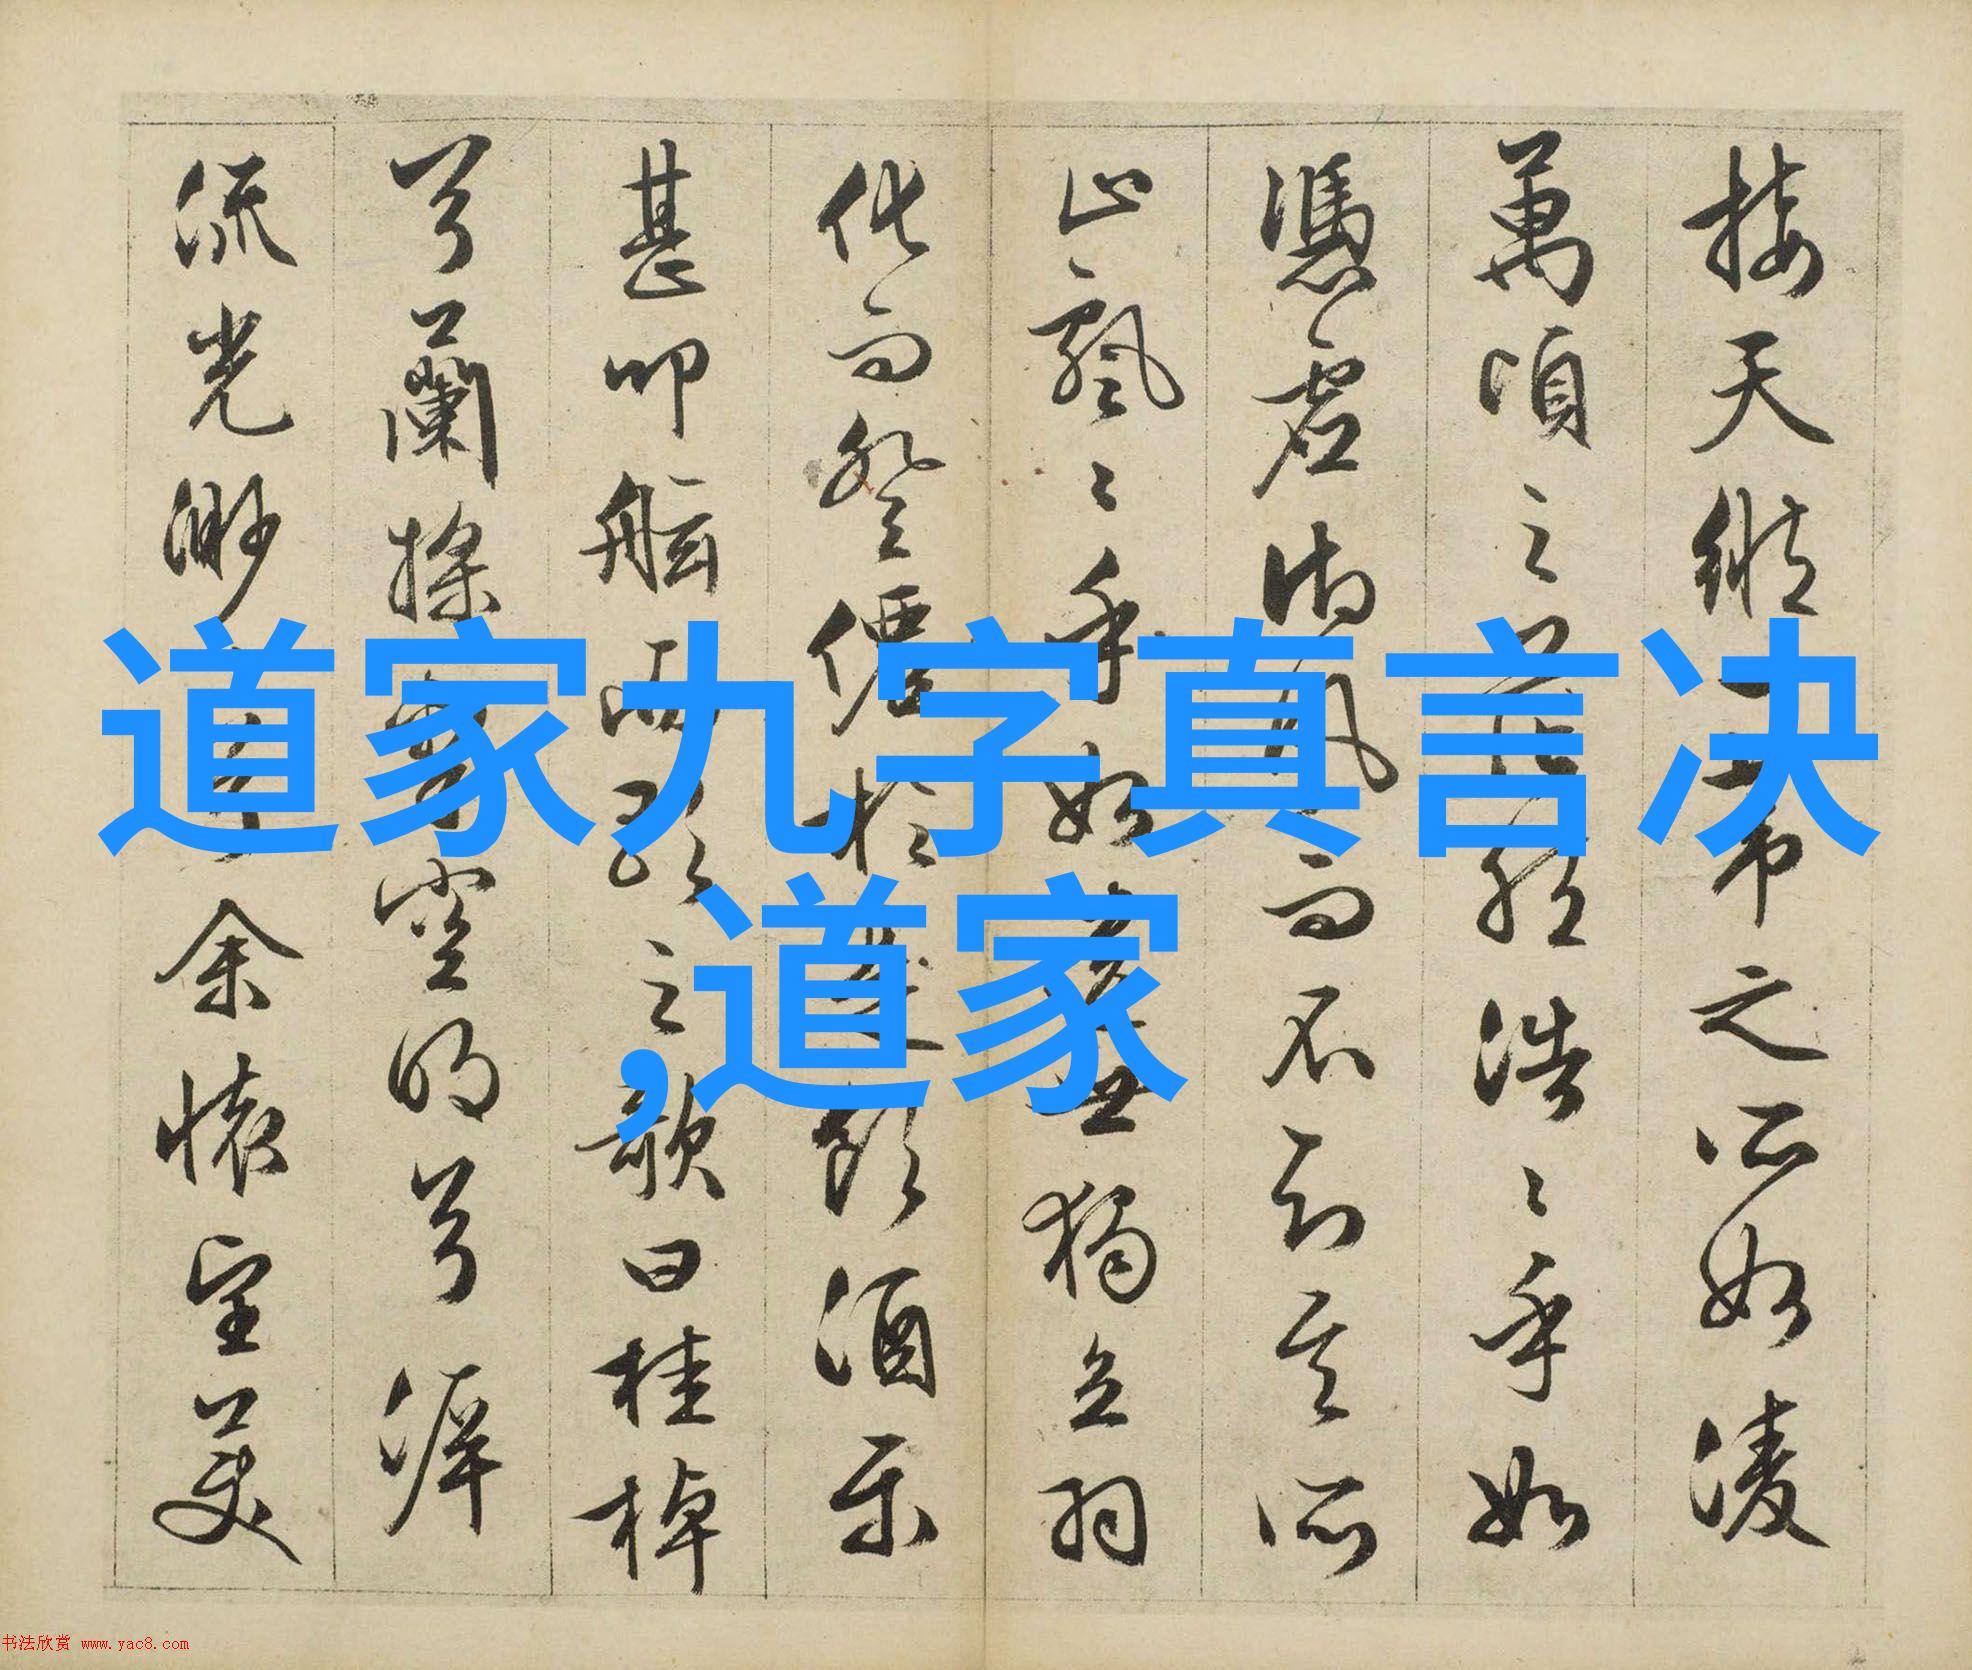 接天縱葦之所如淩
萬頃之茫然浩〻乎如
憑虛御風而不知其所
止飄〻乎如遺世獨立羽
化而登僊於是飲酒樂
甚叩舷而歌之歌曰桂棹
兮蘭槳擊空明兮泝
流光渺余懷望美
道家九字真言决
,道家
书法欣赏 www.yac8.com